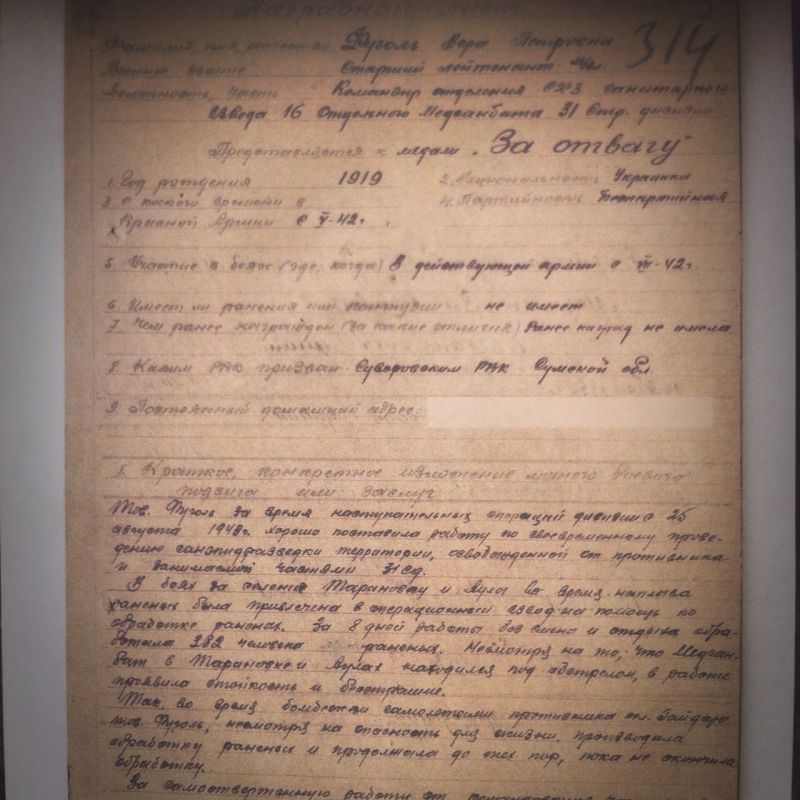 Наградной лист
314
Фамилия, имя, отчество Фуголь Вера Петровна
Военное звание Старший лейтенант м/с.
Должность, часть Командир отделения СХЗ санитарного
взвода 16 Отдельного Медсанбата 31 Стр. дивизии
Представляется к медали „За отвагу"
1. Год рождения 1919 2. Национальность Украинка
3. С какого времени в 4. Партийность Беспартийная
Красной Армии с V-42г.
5. Участие в боях (где, когда) В действующей армии с VII-42г.
6 Имеет ли ранения или контузии не имеет
7 Чем ранее награжден (за какие отличия) Ранее наград не имела
8 Каким РВК призван Суворовским РВК Сумской обл.
9 Постоянный домашний адрес:
I. Краткое, конкретное изложение личного боевого
подвига или заслуг
Тов. Фуголь за время наступательных операций дивизии с 25
августа 1943г. хорошо поставила работу по своевременному прове-
дению санэпидразведки территории, освобожденной от противника
и занимаемой частями 31 сд.
В боях за селения Тарановку и Аулы во время наплыва
раненых была привлечена в операционный взвод на помощь по
обработке раненых. За 8 дней работы без смены и отдыха обра-
ботала 382 человека раненых. Несмотря на то, что Медсан-
бат в Тарановке и Аулах находился под обстрелом, в работе
проявила стойкость и бесстрашие.
Так, во время бомбежки самолетами противника Гайдаю
тов. Фуголь, несмотря на опасность для жизни, производила
обработку раненых и продолжала до тех пор, пока не окончила
обработку.
За самоотверженную работу от командования